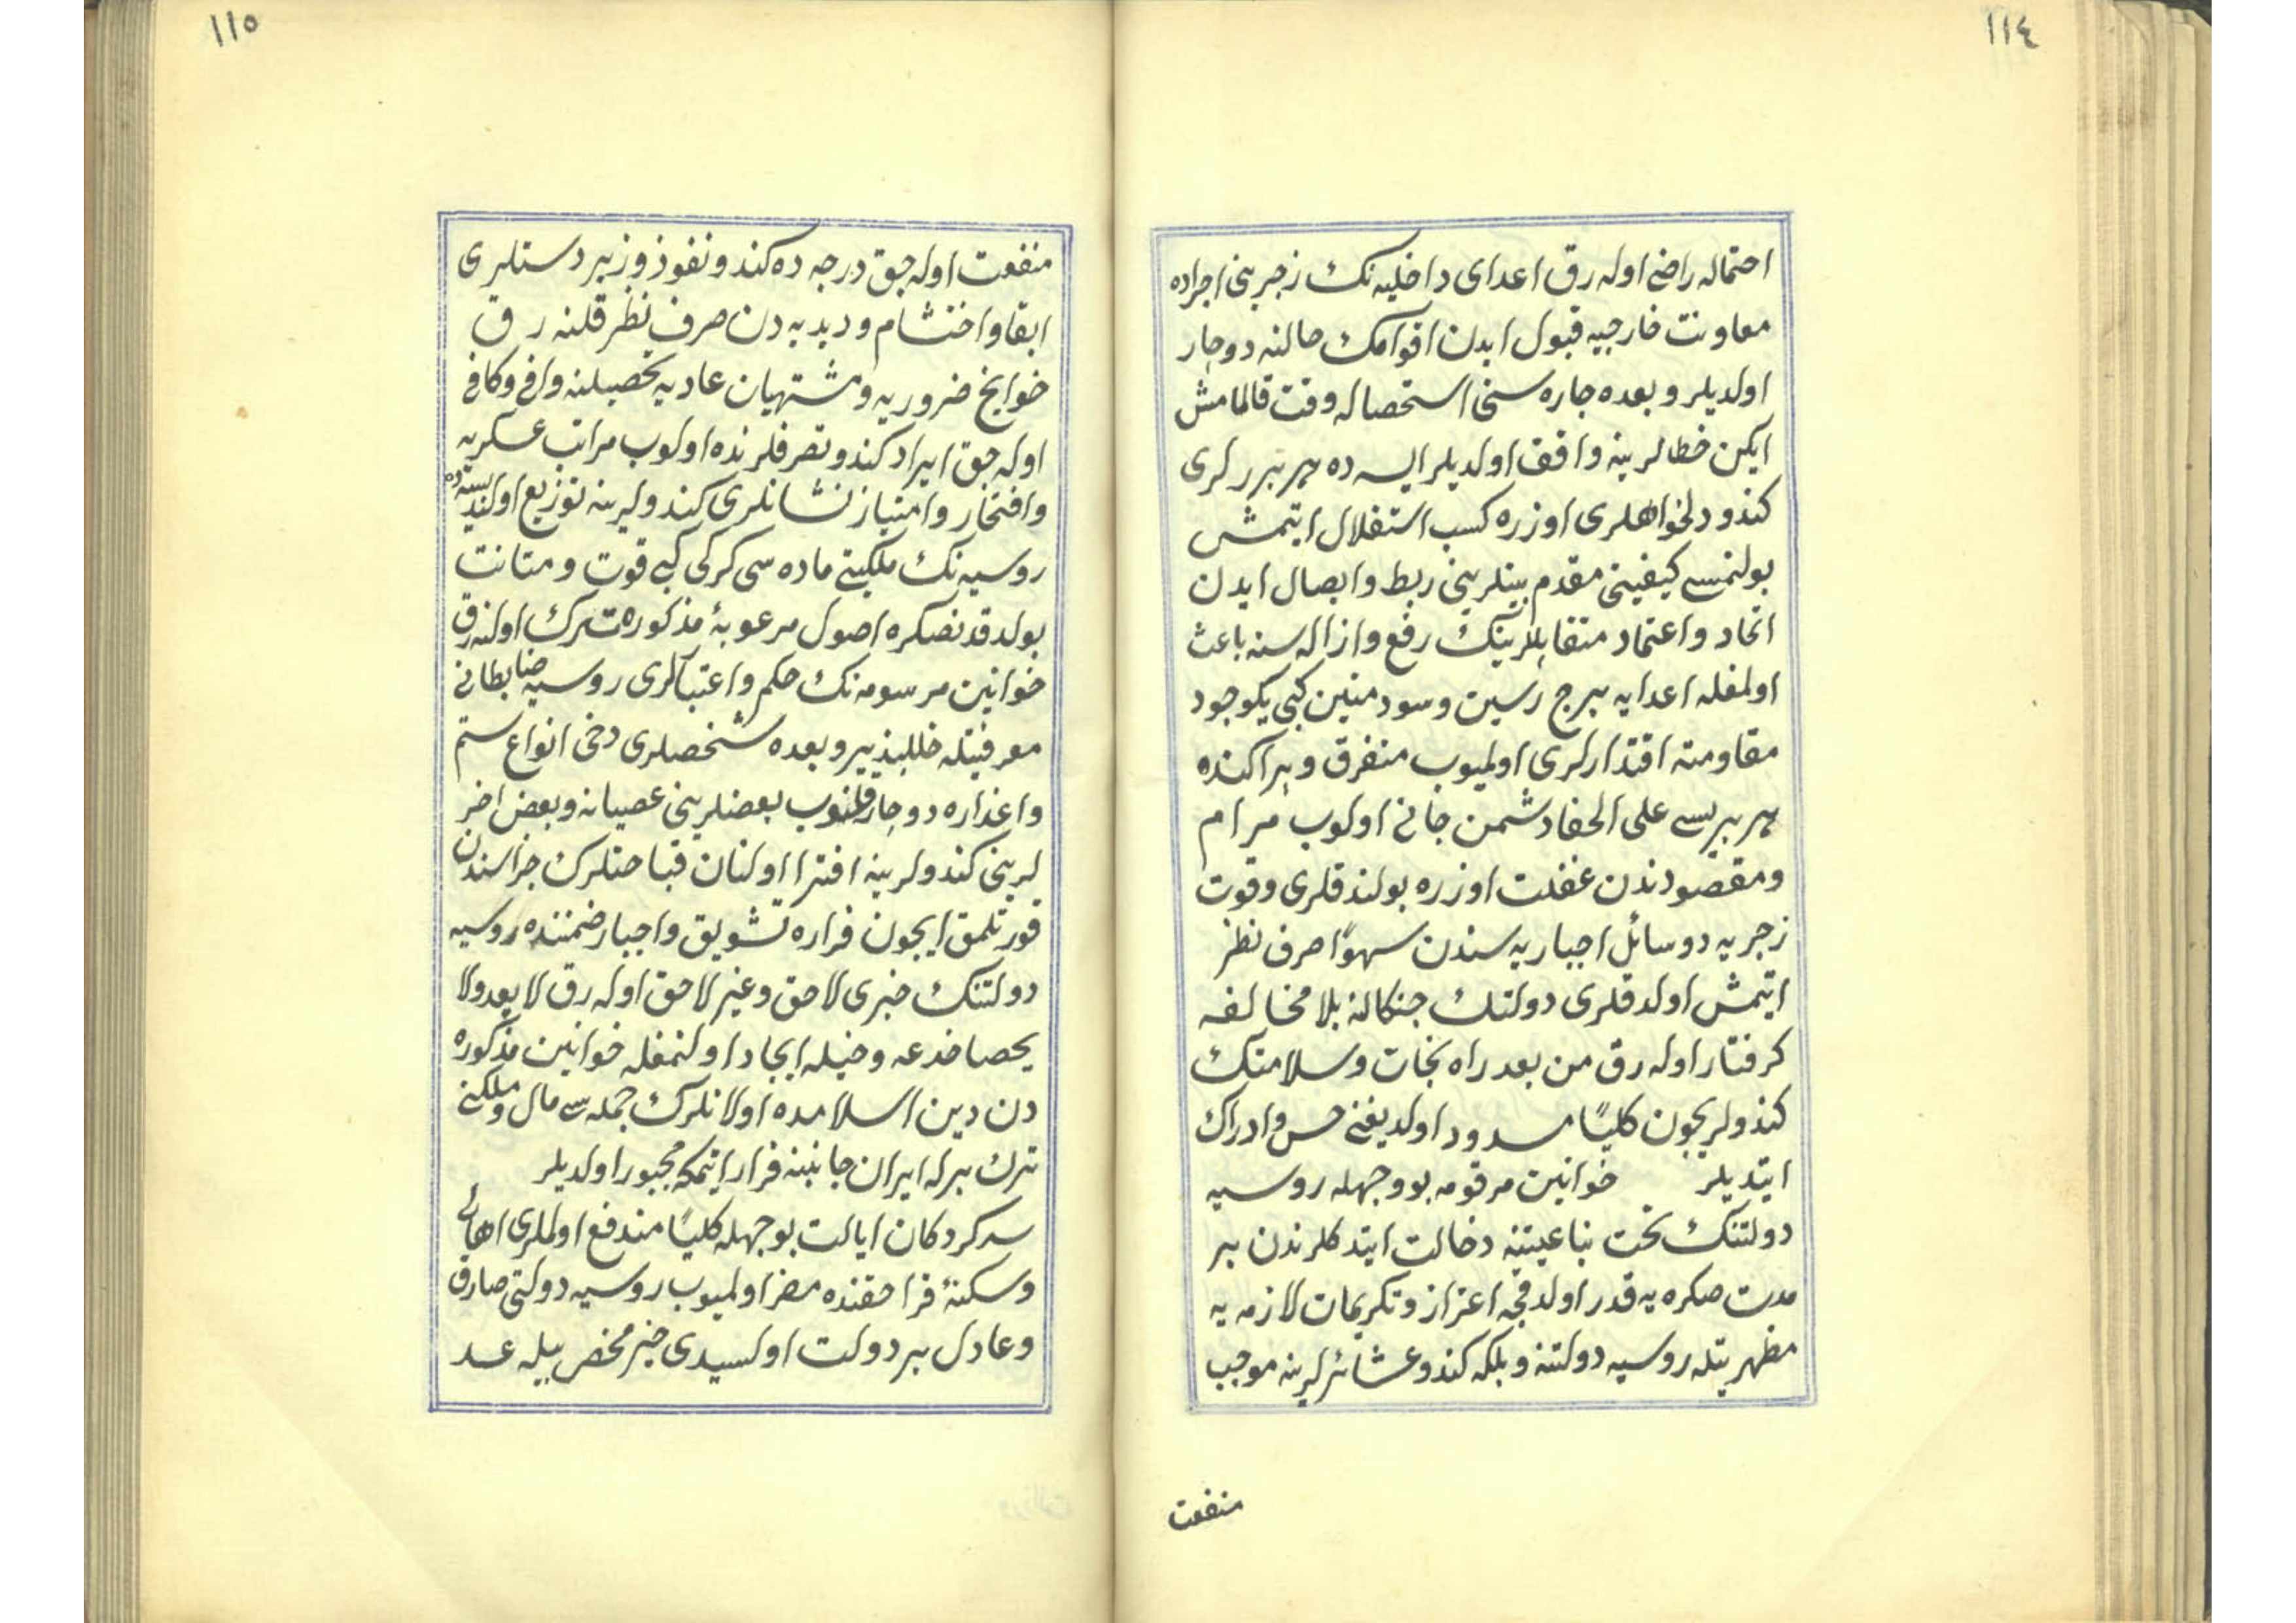 ١١٤
احتماله راضی اوله رق اعدای داخلیه نك زجرینی اجراده
معاونت خارجیه قبول ایدن اقوامك حالنه دوچار
اولدیلر و بعده چاره سنی استحصاله وقت قالمامش
ایکن خطالرینه واقف اولدیلر ایسه ده هر برلری
کندو دلخواهلری اوزره کسب استقلال ایتمش
بولنمسی کیفیتی مقدم بینلرینی ربط وایصال ایدن
اتحاد واعتماد متقابللرینك رفع وازاله سنه باعث
اولمغله اعدایه برج رسین وسود متین کبی یکوجود
مقاومته اقتدارلری اولمیوب متفرق و پراکنده
هر بریسی علی الخفا دشمن جانی اولوب مرام
ومقصودندن غفلت اوزره بولندقلری وقوت
زجریه و وسائل اجباریه سندن سهواً صرف نظر
ایتمش اولدقلری دولتك چنکالنه بلا مخالفه
کرفتار اوله رق من بعد راه نجات وسلامتك
کندولریچون کلیاً مسدود اولدیغنی حس وادراك
ایتدیلر خوانین مرقومه بو وجهله روسیه
دولتنك تحت تباعیتنه دخالت ایتدکلرندن بر
مدت صکره یه قدر اولدقجه اعزاز وتکریمات لازمه یه
مظهریتله روسیه دولتنه وبلکه کندو عشائرلرینه موجب
منفعت
١١٥
منفعت اوله جق درجه ده کندو نفوذ وزبردستلری
ابقا واحتشام ودبدبه دن صرف نظر قلنه رق
حوایج ضروریه ومشتهیات عادیه تحصیلنه وافی وکافی
اوله جق ایراد کندو تصرفلرنده اولوب مراتب عسکریه
وافتخار وامتیاز نشانلری کندولرینه توزیع اولندیسه ده
روسیه نك ملکیتی ماده سی کرکی کبی قوت و متانت
بولدقدنصکره اصول مرعوبهٔ مذکوره ترك اولنه رق
خوانین مرسومه نك حکم واعتبارلری روسیه ضابطانی
معرفتیله خللپذیر وبعده شخصلری دخی انواع ستم
واغداره دوچار قلنوب بعضلرینی عصیانه وبعض اخر
لرینی کندولرینه افترا اولنان قباحتلرك جزاسندن
قورتلمق ایچون فراره تشویق واجبار ضمننده روسیه
دولتنك خبری لاحق وغیر لاحق اوله رق لا یعد ولا
یحصا خدعه وحیله ایجاد اولنمغله خوانین مذکوره
دن دین اسلامده اولانلرك جمله سی مال وملکنی
ترك برله ایران جانبنه فرار ایتمکه مجبور اولدیلر
سرکردکان ایالت بو جهله کلیاً مندفع اولملری اهالی
وسکنهٔ قرا حقنده مضر اولمیوب روسیه دولتی صادق
وعادل بر دولت اولسیدی خیر محض بیله عد